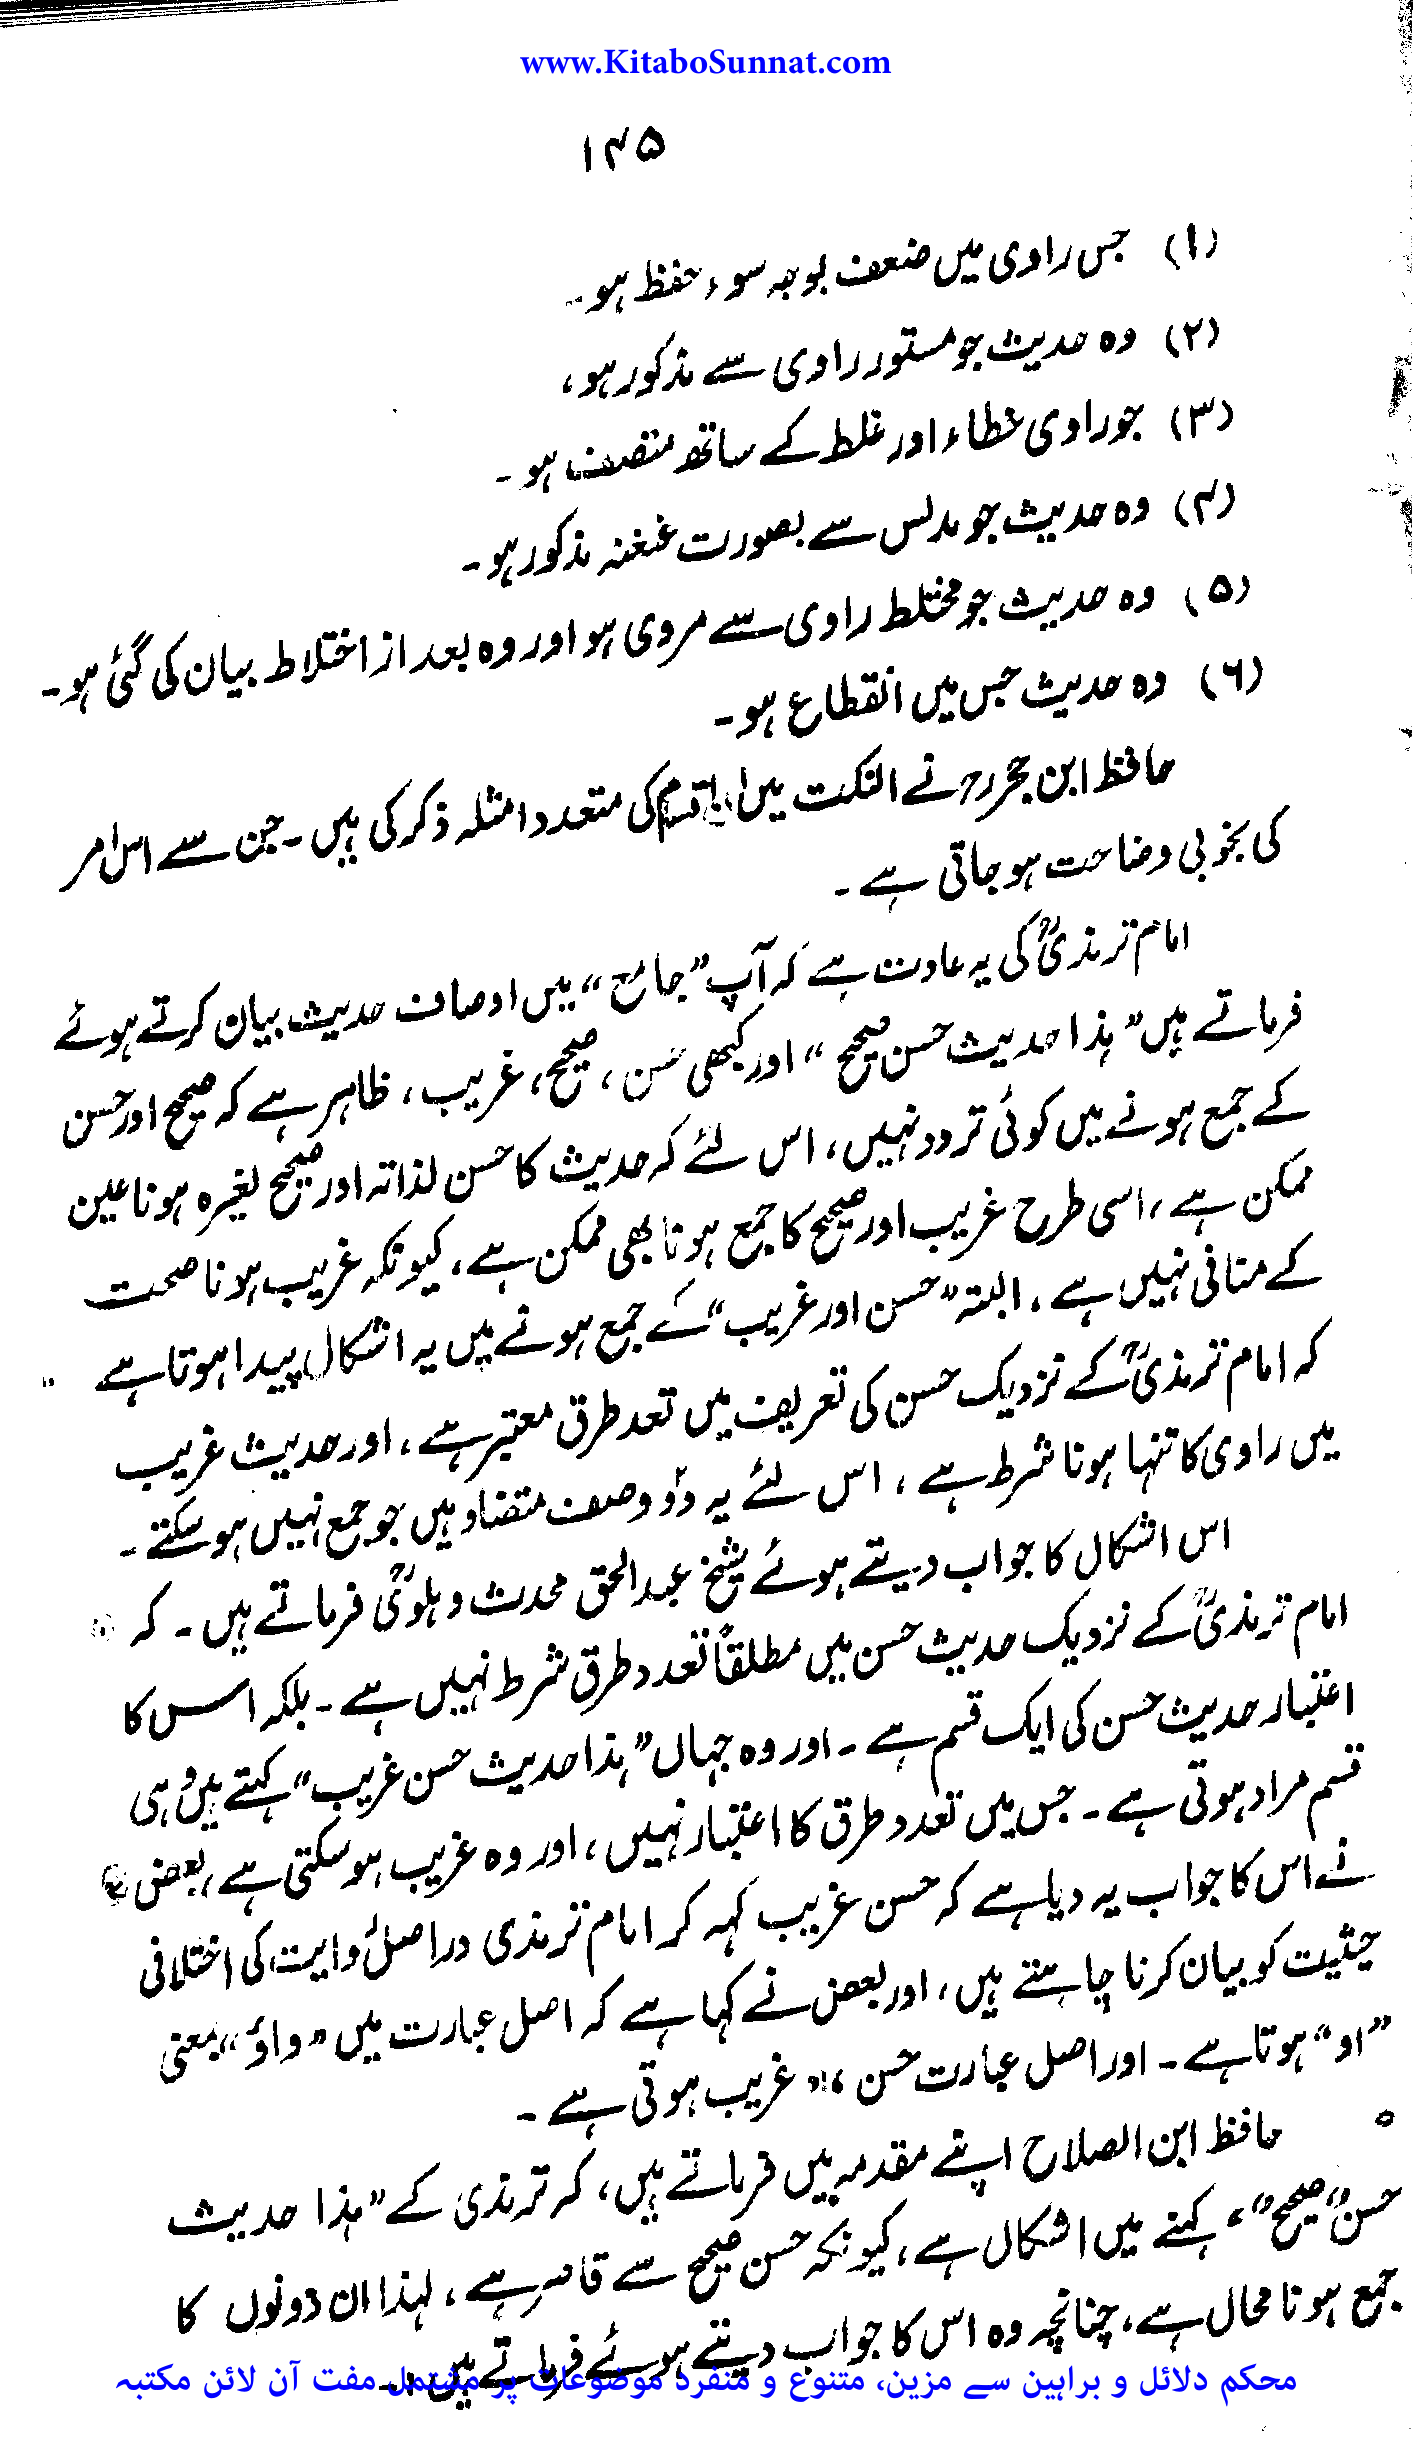 www.KitaboSunnat.com
۱۴۵
(۱) جس راوی میں ضعف بوجہ سوء حفظ ہو۔
(۲) وہ حدیث جو مستور راوی سے مذکور ہو،
(۳) جو راوی خطاء اور غلط کے ساتھ متصف ہو۔
(۴) وہ حدیث جو مدلس سے بصورت عنعنہ مذکور ہو۔
(۵) وہ حدیث جو مختلط راوی سے مروی ہو اور وہ بعد از اختلاط بیان کی گئی ہو۔
(۶) وہ حدیث جس میں انقطاع ہو۔
حافظ ابن حجرؒ نے النکت میں ان اقسام کی متعدد امثلہ ذکر کی ہیں۔ جن سے اس امر
کی بخوبی وضاحت ہو جاتی ہے۔
امام ترمذیؒ کی یہ عادت ہے کہ آپ ”جامع“ میں اوصاف حدیث بیان کرتے ہوئے
فرماتے ہیں ”ہذا حدیث حسن صحیح“ اور کبھی حسن، صحیح، غریب، ظاہر ہے کہ صحیح اور حسن
کے جمع ہونے میں کوئی تردد نہیں، اس لئے کہ حدیث کا حسن لذاتہ اور صحیح لغیرہ ہونا عین
ممکن ہے، اسی طرح غریب اور صحیح کا جمع ہونا بھی ممکن ہے، کیونکہ غریب ہونا صحت
کے منافی نہیں ہے، البتہ ”حسن اور غریب“ کے جمع ہونے میں یہ اشکال پیدا ہوتا ہے
کہ امام ترمذیؒ کے نزدیک حسن کی تعریف میں تعدد طرق معتبر ہے، اور حدیث غریب
میں راوی کا تنہا ہونا شرط ہے، اس لئے یہ دو وصف متضاد ہیں جو جمع نہیں ہو سکتے۔
اس اشکال کا جواب دیتے ہوئے شیخ عبدالحق محدث دہلویؒ فرماتے ہیں۔ کہ
امام ترمذیؒ کے نزدیک حدیث حسن میں مطلقاً تعدد طرق شرط نہیں ہے۔ بلکہ اس کا
اعتبار حدیث حسن کی ایک قسم ہے۔ اور وہ جہاں ”ہذا حدیث حسن غریب“ کہتے ہیں وہی
قسم مراد ہوتی ہے۔ جس میں تعدد طرق کا اعتبار نہیں، اور وہ غریب ہو سکتی ہے، بعض
نے اس کا جواب یہ دیا ہے کہ حسن غریب کہہ کر امام ترمذی دراصل روایت کی اختلافی
حیثیت کو بیان کرنا چاہتے ہیں، اور بعض نے کہا ہے کہ اصل عبارت میں ”واؤ“ بمعنی
”او“ ہوتا ہے۔ اور اصل عبارت حسن، او غریب ہوتی ہے۔
حافظ ابن الصلاح اپنے مقدمہ میں فرماتے ہیں، کہ ترمذی کے ”ہذا حدیث
حسنٌ صحیحٌ“ کہنے میں اشکال ہے، کیونکہ حسن صحیح سے قاصر ہے، لہذا ان دونوں کا
جمع ہونا محال ہے، چنانچہ وہ اس کا جواب دیتے ہوئے فرماتے ہیں:۔
محکم دلائل و براہین سے مزین، متنوع و منفرد موضوعات پر مشتمل مفت آن لائن مکتبہ